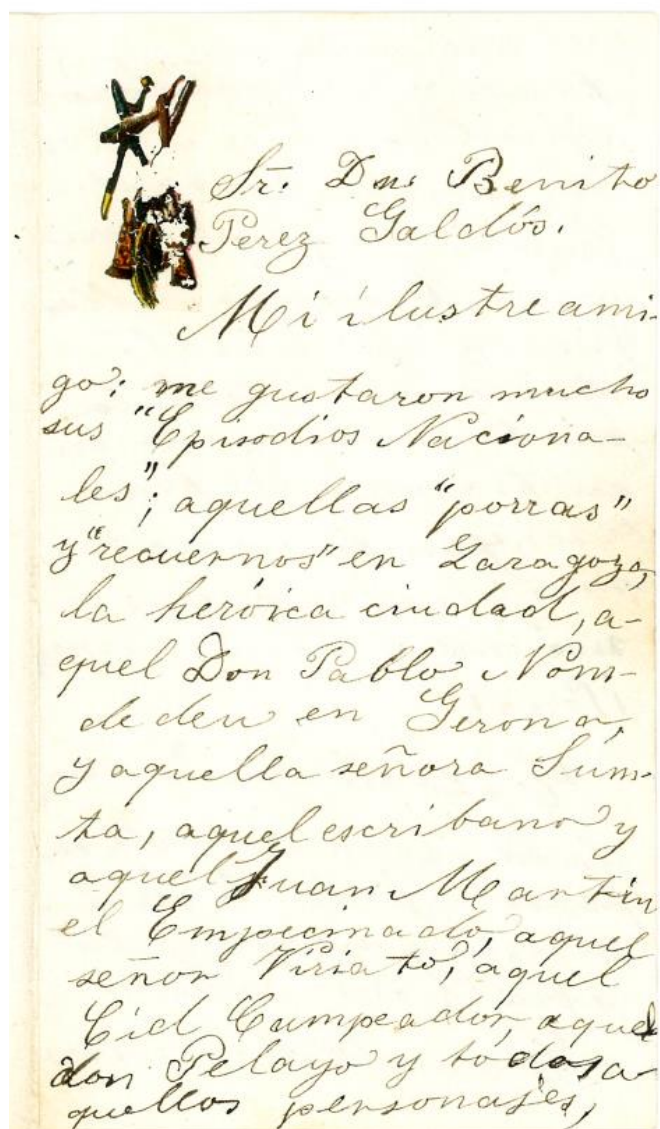 Sr. Dn. Benito
Perez Galdós.
Mi ilustre ami-
go: me gustaron mucho
sus "Episodios Naciona-
les"; aquellas "porras"
y "recuernos" en Zaragoza,
la heróica ciudad, a-
quel Don Pablo Nom-
dedeu en Gerona,
y aquella señora Sum-
ta, aquel escribano y
aquel Juan Martin
el Empecinado, aquel
señor Viriato, aquel
Cid Campeador, aquel
don Pelayo y todos a
quellos personajes,